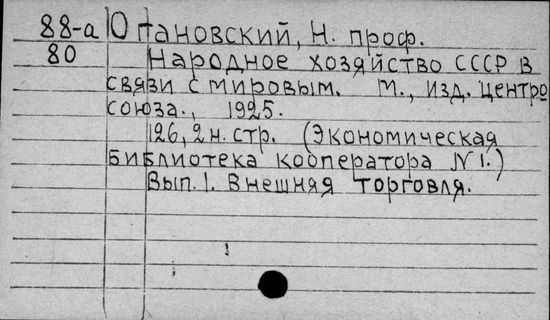 88-а Юштановский, Н. проф.
80 Народное хозяйство СССР в
связи с мировым. М., изд. центро
союза., 1925.
126, 2 н. стр. (Экономическая
библиотека кооператора N 1.)
Вып. 1. Внешняя торговля.